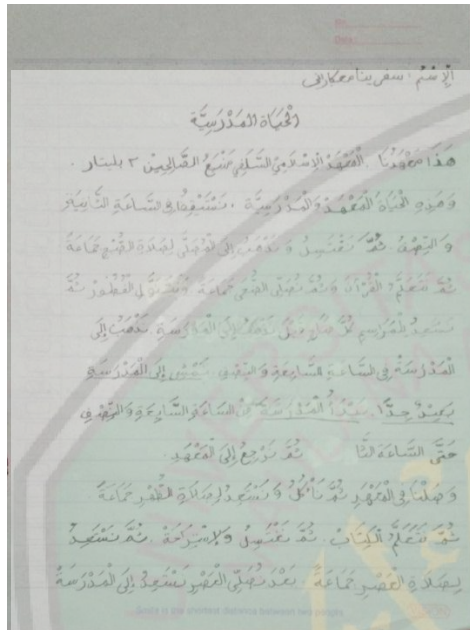 No:
Date:
الإسم: سفرينا مهاراني
الْحَيَاةُ الْمَدْرَسِيَّةُ
هَذَا مَعْهَدُنَا الْمَعْهَدُ الْإِسْلَامِيُّ السَّلَفِيُّ مَنْبَعُ الصَّالِحِيْنَ ٢ بليتار.
وَهَذِهِ الْحَيَاةُ الْمَعْهَدُ وَالْمَدْرَسِيَّة، نَسْتَيْقِظُ فِي السَّاعَةِ الثَّانِيَةِ
وَالنِّصْفِ ثُمَّ نَغْتَسِلُ وَنَذْهَبُ إِلَى الْمُصَلَّى لِصَلَاةِ الصُّبْحِ جَمَاعَةً
ثُمَّ نَتَعَلَّمُ الْقُرْآنَ وَثُمَّ نُصَلِّى الضُّحَى جَمَاعَة الْفُطُوْرَ ثُمَّ
نَسْتَعِدُّ كُلَّ قَبْلَ نَذْهَبُ إِلَى الْمَدْرَسَةِ. نَذْهَبُ إِلَى
الْمَدْرَسَةِ فِى السَّاعَةِ السَّابِعَةِ وَالنِّصْفِ. نَمْشِى إِلَى الْمَدْرَسَةِ
بَعِيْدٌ جِدًّا. نَبْدَأُ الْمَدْرَسَةَ مِنَ السَّاعَةِ السَّابِعَةِ وَالنِّصْفِ
حَتَّى السَّاعَةِ الثَّا ثُمَّ نَرْجِعُ إِلَى الْمَعْهَدِ.
وَصَلْنَا فِى الْمَعْهَدِ ثُمَّ نَأْكُلُ وَنَسْتَعِدُّ لِصَلَاةِ الظُّهْرِ جَمَاعَةً
ثُمَّ نَتَعَلَّمُ الْكِتَابَ. ثُمَّ نَغْتَسِلُ وَلإِسْتِرَاحَة. ثُمَّ نَسْتَعِدُّ
لِصَلَاةِ الْعَصْرِ جَمَاعَةً. بَعْدَ نُصَلِّى الْعَصْرَ نَسْتَعِدُّ إِلَى الْمَدْرَسَةِ
is the shortest distance between two points